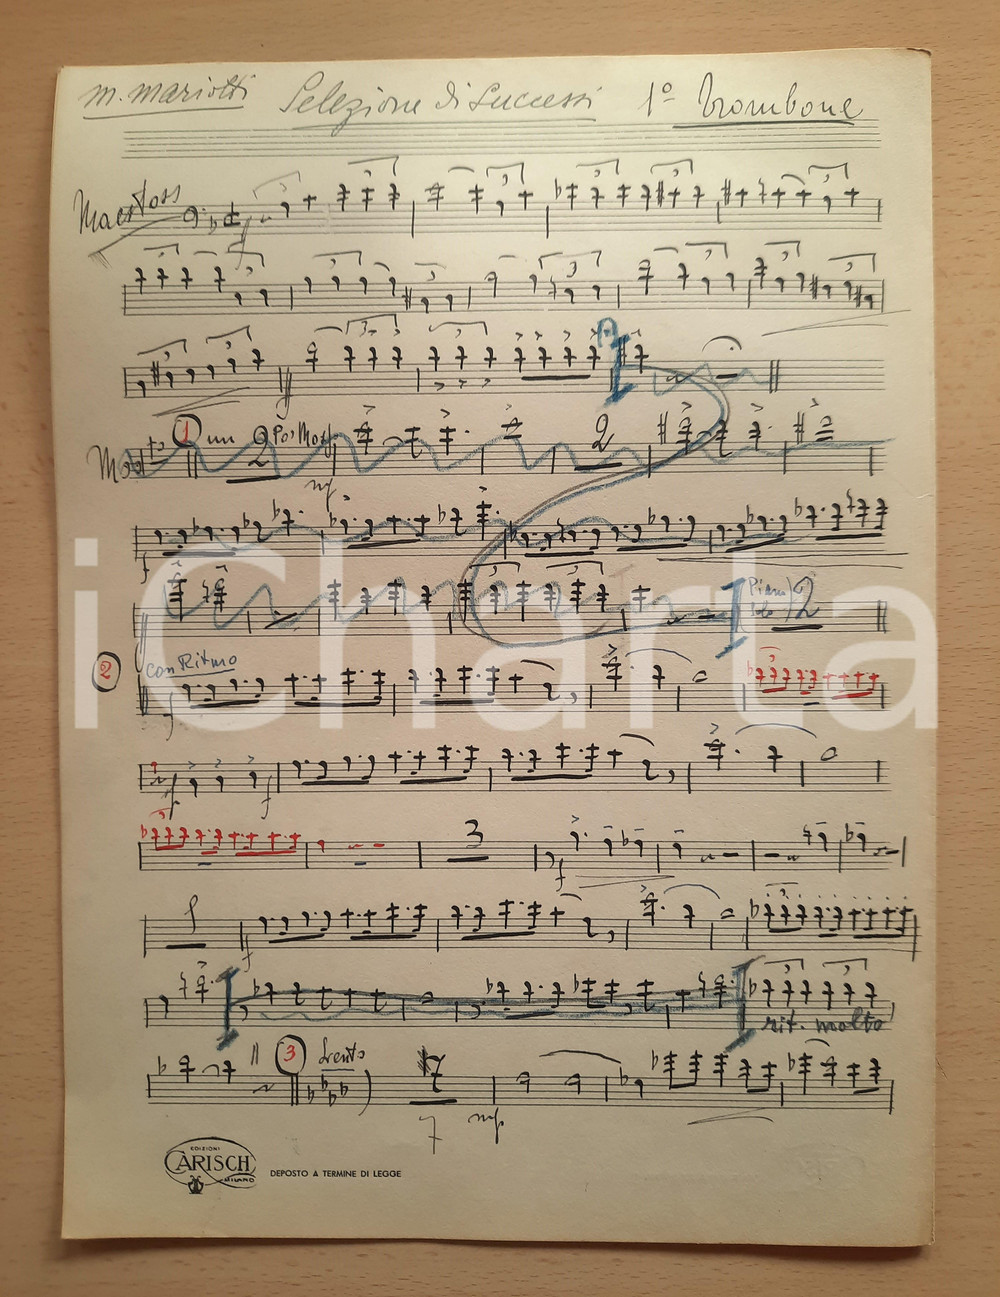 M. Mariotti Selezione di Successi 1º Trombone
Maestoso
f
A
1 un Po' Mosso
2
2
mf
f
Piano Solo 2
2 con Ritmo
f
f
3
f
1
f
rit. molto
3 Lento
7
7
mf
EDIZIONI
CARISCH
MILANO
DEPOSTO A TERMINE DI LEGGE
iCharta